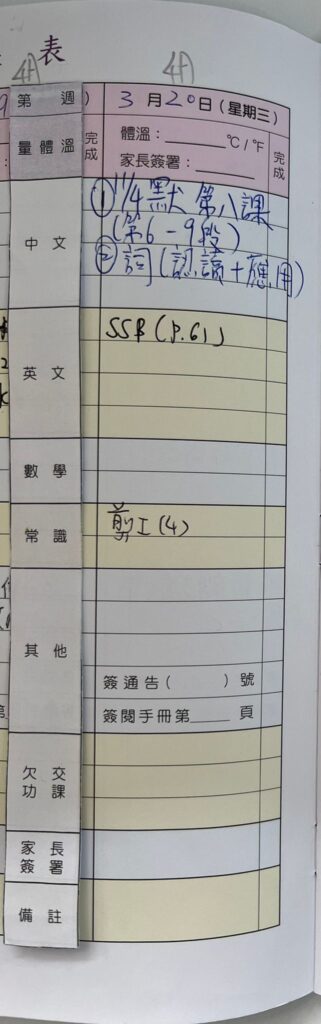 表
4A
4A
第 週
3月20日(星期三)
量體溫
完成
體溫:______ ℃/℉
家長簽署:______
完成
中文
① 11/4默 第八課
(第6-9段)
② 詞(認讀+應用)
英文
SSB (P.61)
數學
常識
剪工(4)
其他
簽通告( )號
簽閱手冊第____頁
欠交
功課
家長
簽署
備註